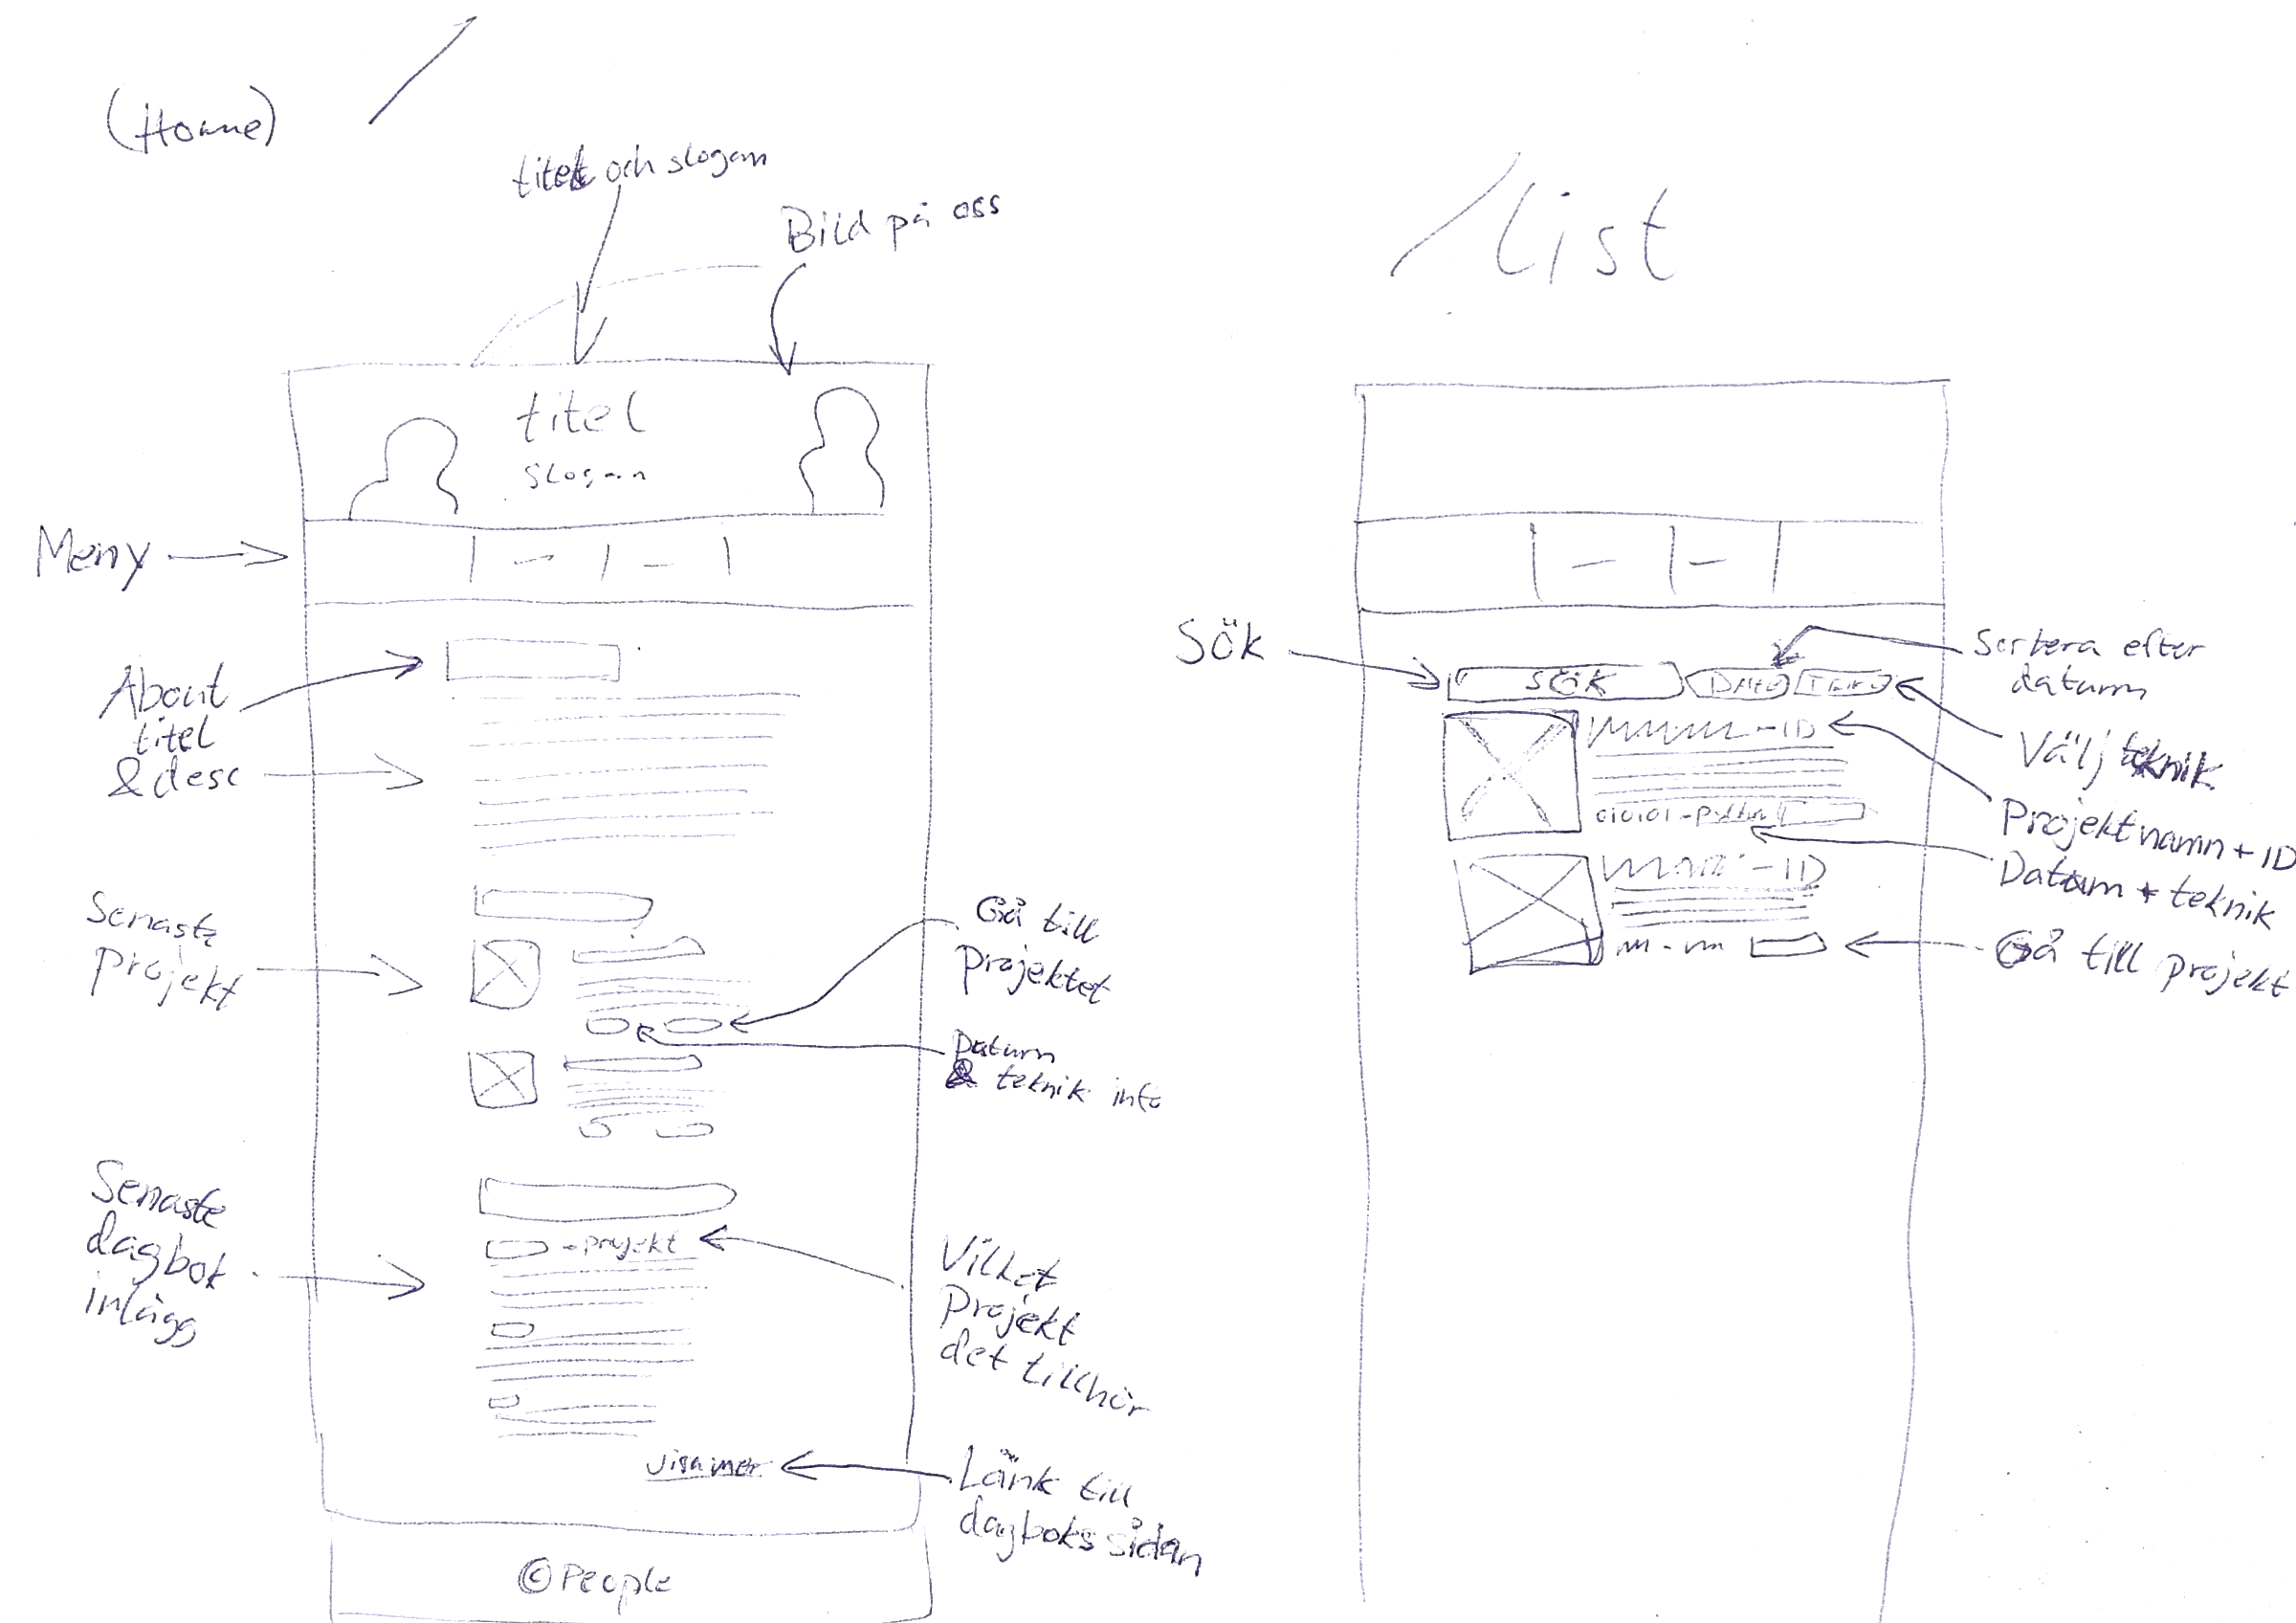 (Home)
/
titel och slogan
Bild på oss
titel
slogan
Meny
About
titel
& desc
Senaste
projekt
Gå till
projektet
Datum
& teknik info
Senaste
dagbok
inlägg
- projekt
Vilket
Projekt
det tillhör
visa mer
Länk till
dagboks sidan
© People
/list
Sök
SÖK
Sortera efter
datum
Välj teknik
- ID
Projektnamn + ID
010101 - python
Datum + teknik
- ID
Gå till projekt